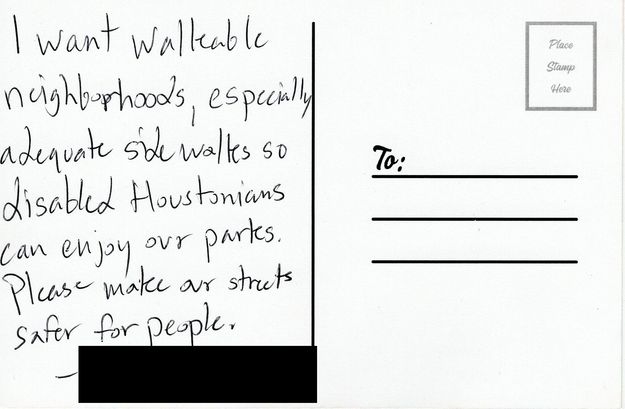 I want walkable
neighborhoods, especially
adequate sidewalks so
disabled Houstonians
can enjoy our parks.
Please make our streets
safer for people.
—
Place
Stamp
Here
To: